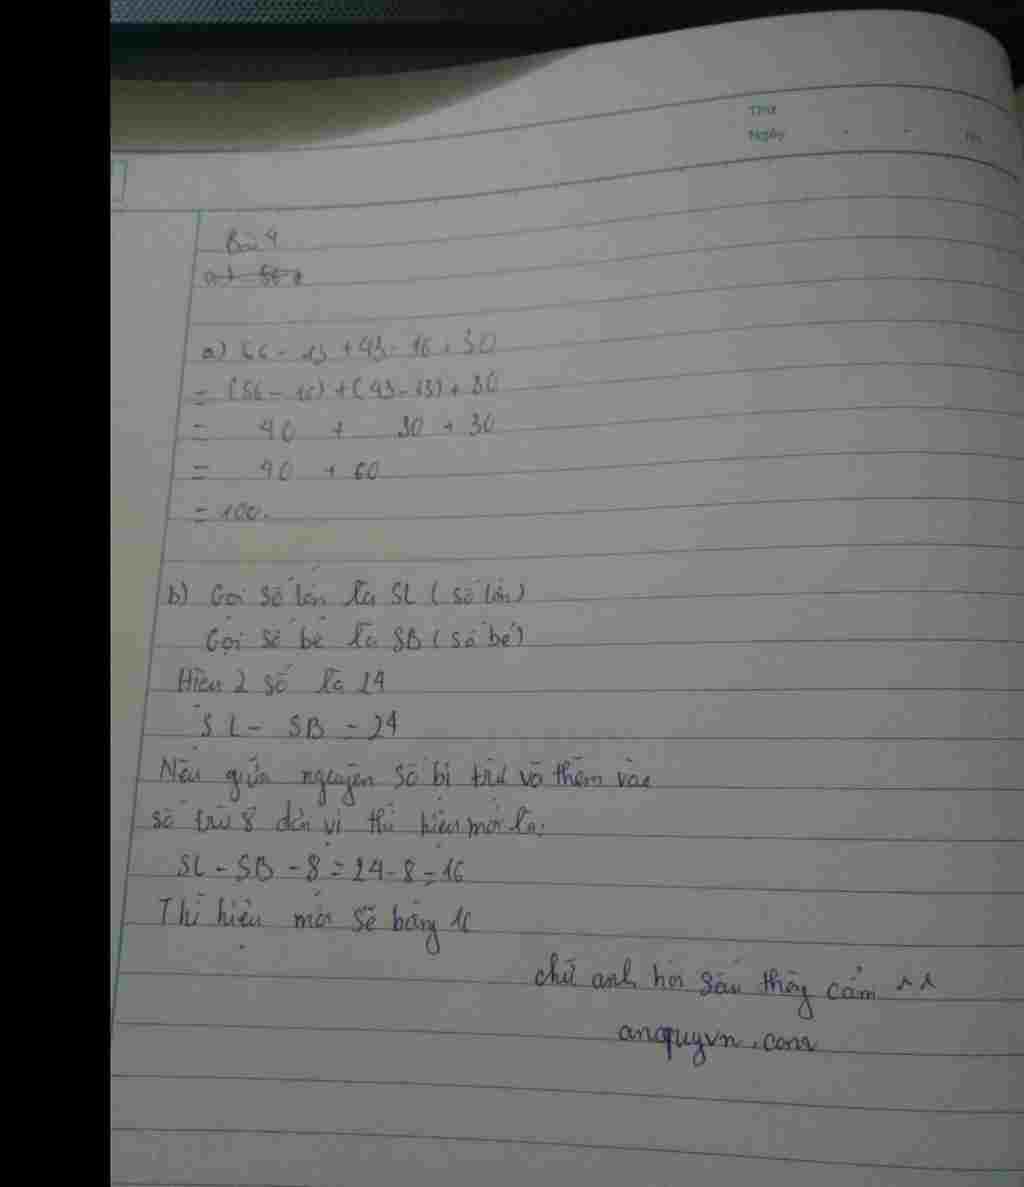 Thứ
Ngày
Bài 4
a) 56 - 13 + 43 - 16 + 30
= (56 - 16) + (43 - 13) + 30
= 40 + 30 + 30
= 40 + 60
= 100.
b) Gọi số lớn là SL (số lớn)
Gọi số bé là SB (số bé)
Hiệu 2 số là 24
SL - SB = 24
Nếu giữa nguyên số bị trừ và thêm vào
số trừ 8 đơn vị thì hiệu mới là:
SL - SB - 8 = 24 - 8 = 16
Thì hiệu mới sẽ bằng 16
chữ anh hơi sấu thông cảm ^^
anquyvn.com